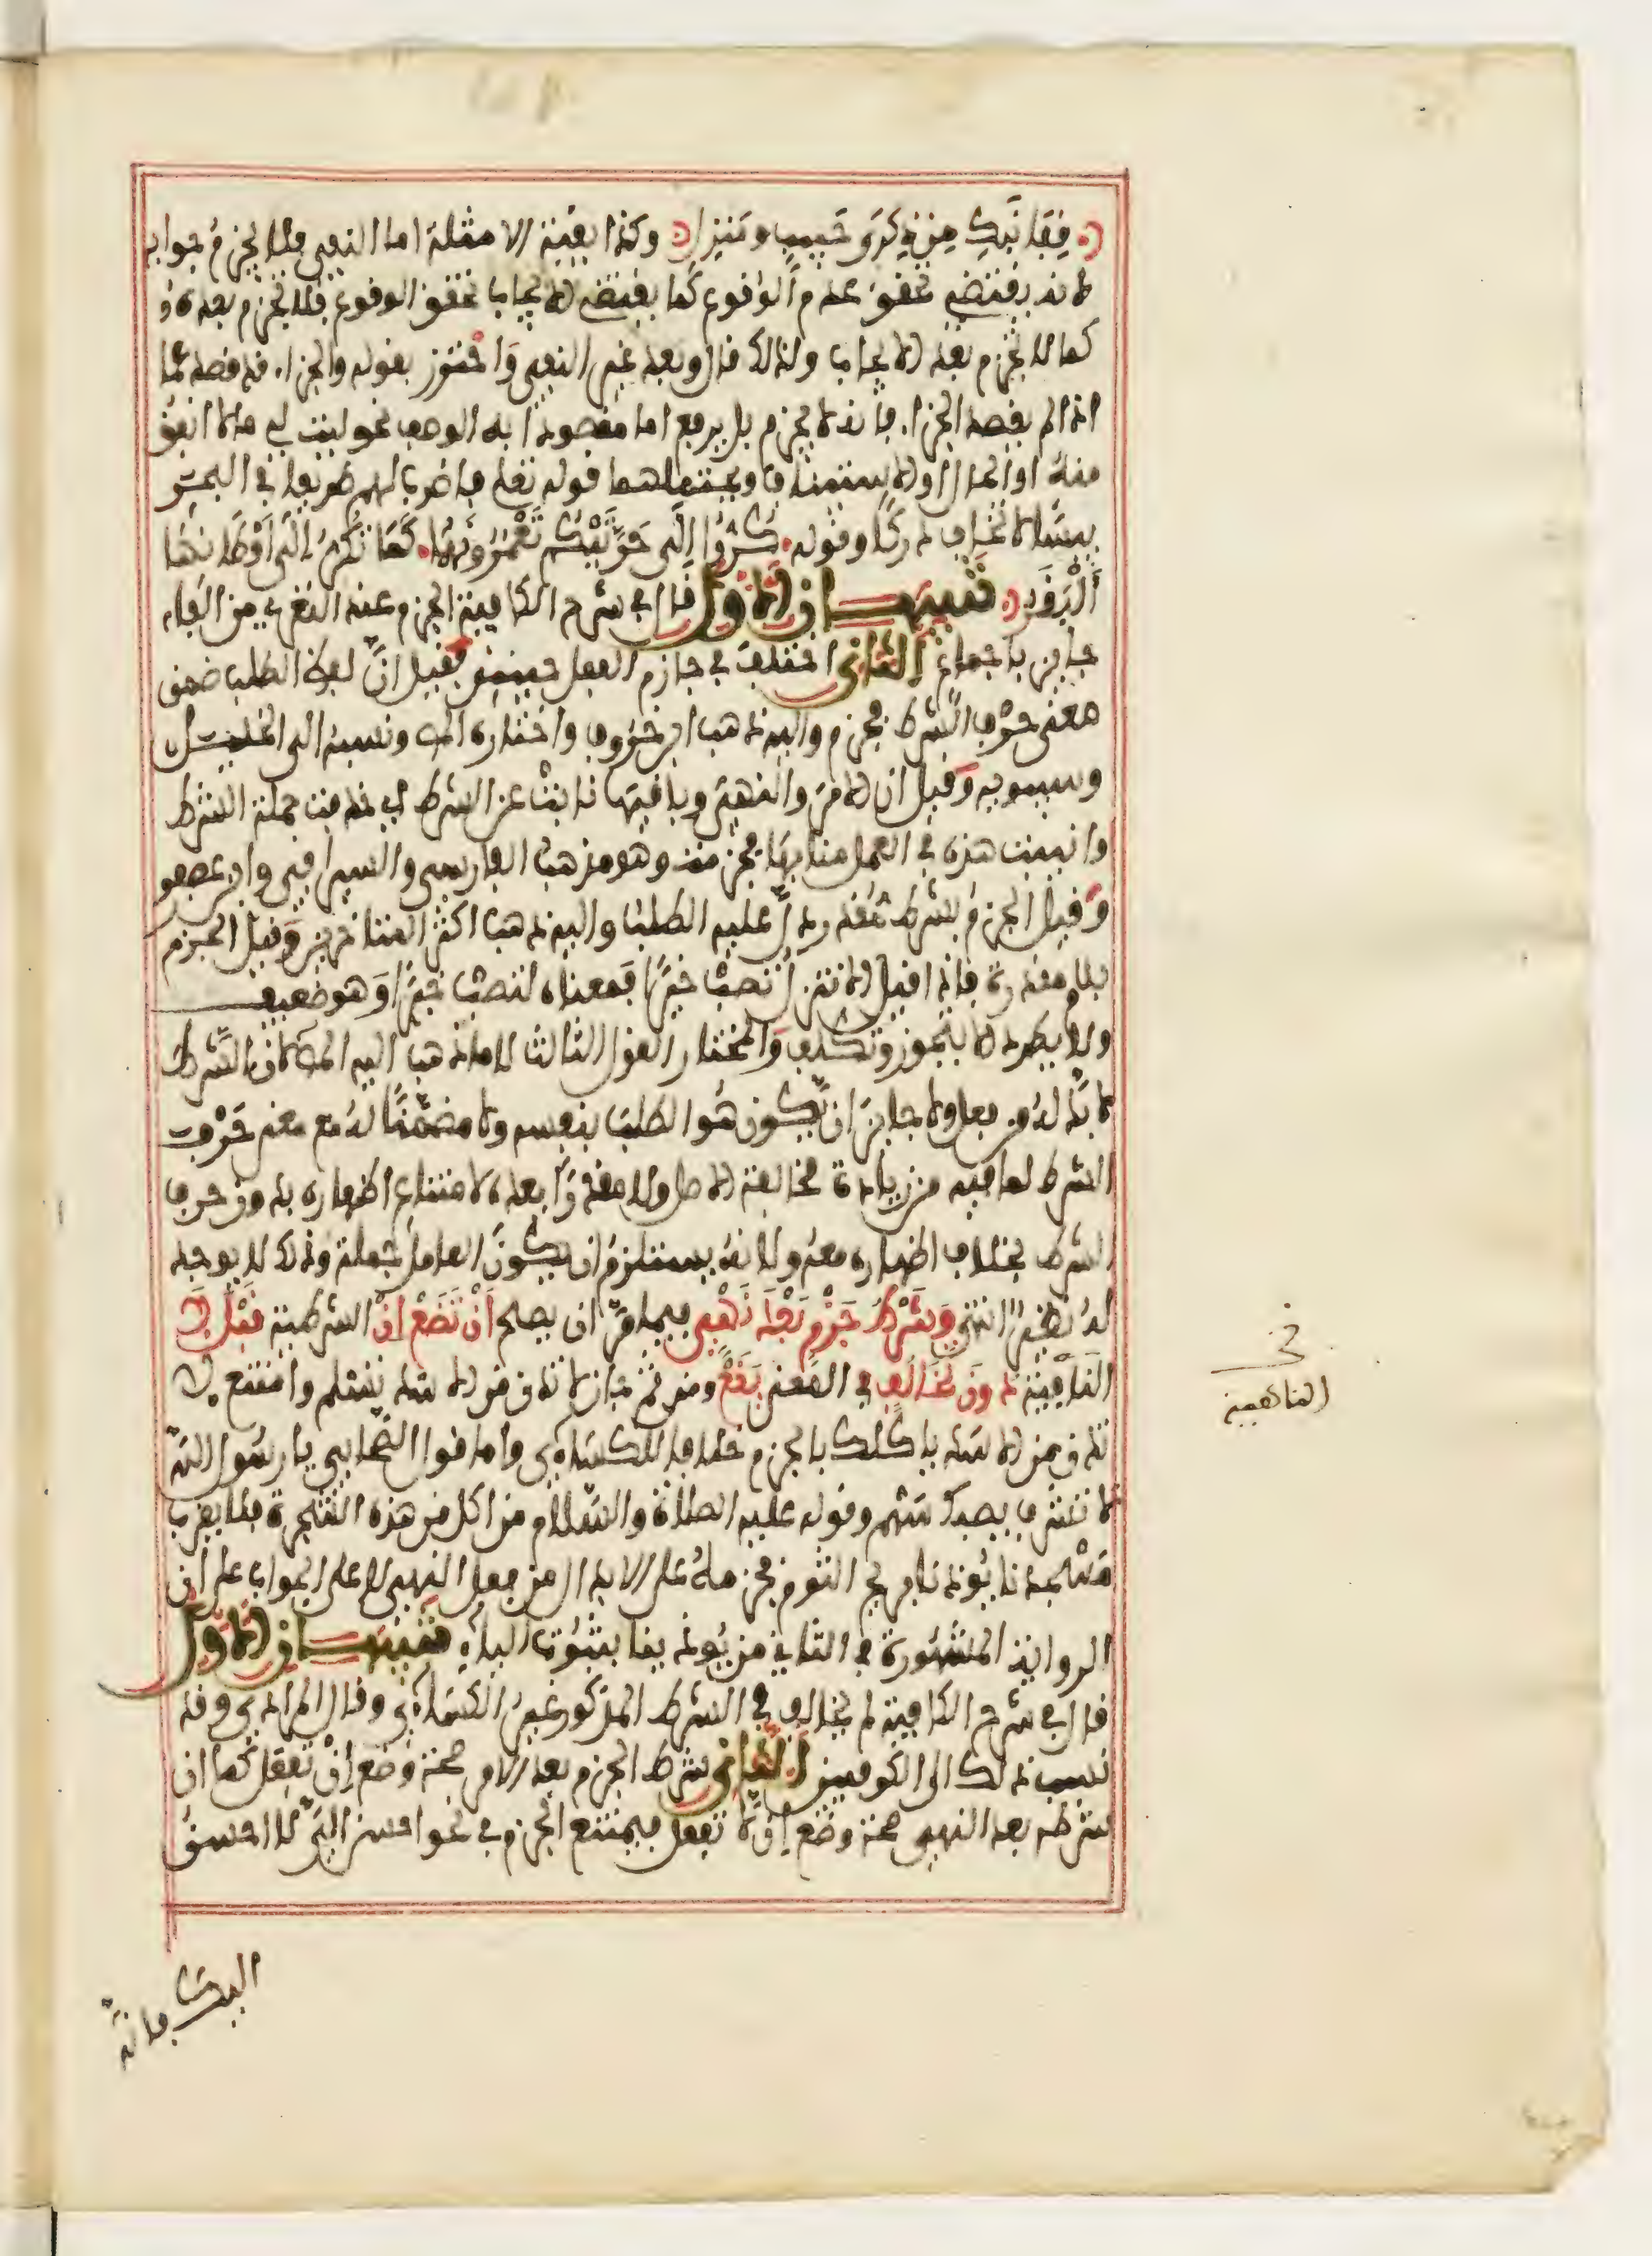 قفا نبك من ذكرى حبيب ومنزل وكذا بقية الامثلة اما النفي فلا يجزم جوابه
لانه يقتضي تحقق عدم الوقوع كما يقتضي الايجاب تحقق الوقوع فلا يجزم بعده
كما لا يجزم بعد الايجاب ولذلك قال وبعد غير النفي واحترز بقوله والجزاء قد قصد عما
اذا لم يقصد الجزاء فانه لا يجزم بل يرفع اما مقصودا به الوصف نحو ليت لي مالا انفق
منه او الحال او الاستئناف ويحتملهما قوله تعلى فاضرب لهم طريقا في البحر
يبسا لا تخاف دركا وقوله كروا الى حرتيكم تعمرونهما كما تكر الى اوطانها
البقر تنبيهان الاول قال في شرح الكافية الجزم عند التعري من الفاء
جايز باجماع الثاني اختلف في جازم الفعل حينئذ فقيل ان لفظ الطلب ضمن
معنى حرف الشرط فجزم واليه ذهب ابن خروف واختاره المص ونسبه الى الخليل
وسيبويه وقيل ان الامر والنهي وباقيها نابت عن الشرط اي حذفت جملة الشرط
وانيبت هذه في العمل منابها فجزمت وهو مذهب الفارسي والسيرافي وابن عصفور
وقيل الجزم بشرط مقدر دل عليه الطلب واليه ذهب اكثر المتاخرين وقيل الجزم
بلام مقدرة فاذا قيل الا تنزل تصب خيرا فمعناه لتصب خيرا وهو ضعيف
ولا يطرد الا بتجوز وتكلف والمختار القول الثالث لا ما ذهب اليه المص لان الشرط
لا بد له من فعل ولا جايز ان يكون هو الطلب بنفسه ولا مضمنا له مع معنى حرف
الشرط لما فيه من زيادة مخالفة الاصل ولا مقدرا بعده لامتناع اظهاره بدون حرف
الشرط بخلاف اظهاره معه ولانه يستلزم ان يكون العامل جملة وذلك لا يوجد
له نظير انتهى وشرط جزم بعد نهي فيما مر ان يصح ان تضع ان الشرطية قبل لا
النافية دون تخالف في المعنى يقع ومن ثم جاز لا تدن من الاسد تسلم وامتنع لا
تدن من الاسد ياكلك بالجزم خلافا للكساءي واما قول الصحابي يا رسول الله
لا تشرف يصبك سهم وقوله عليه الصلاة والسلام من اكل من هذه الشجرة فلا يقرب
مسجدنا يوذنا بريح الثوم فجزمه على الابدال من فعل النهي لا على الجواب على ان
الرواية المشهورة في الثاني من يوذينا بثبوت الياء تنبيهان الاول
قال في شرح الكافية لم يخالف في الشرط المذكور غير الكساءي وقال المرادي وقد
نسب ذلك الى الكوفيين الثاني شرط الجزم بعد الامر صحة وضع ان تفعل كما ان
شرطه بعد النهي صحة وضع ان لا تفعل فيمتنع الجزم في نحو احسن الي لا احسن
اليك فانه
خ
الناهية